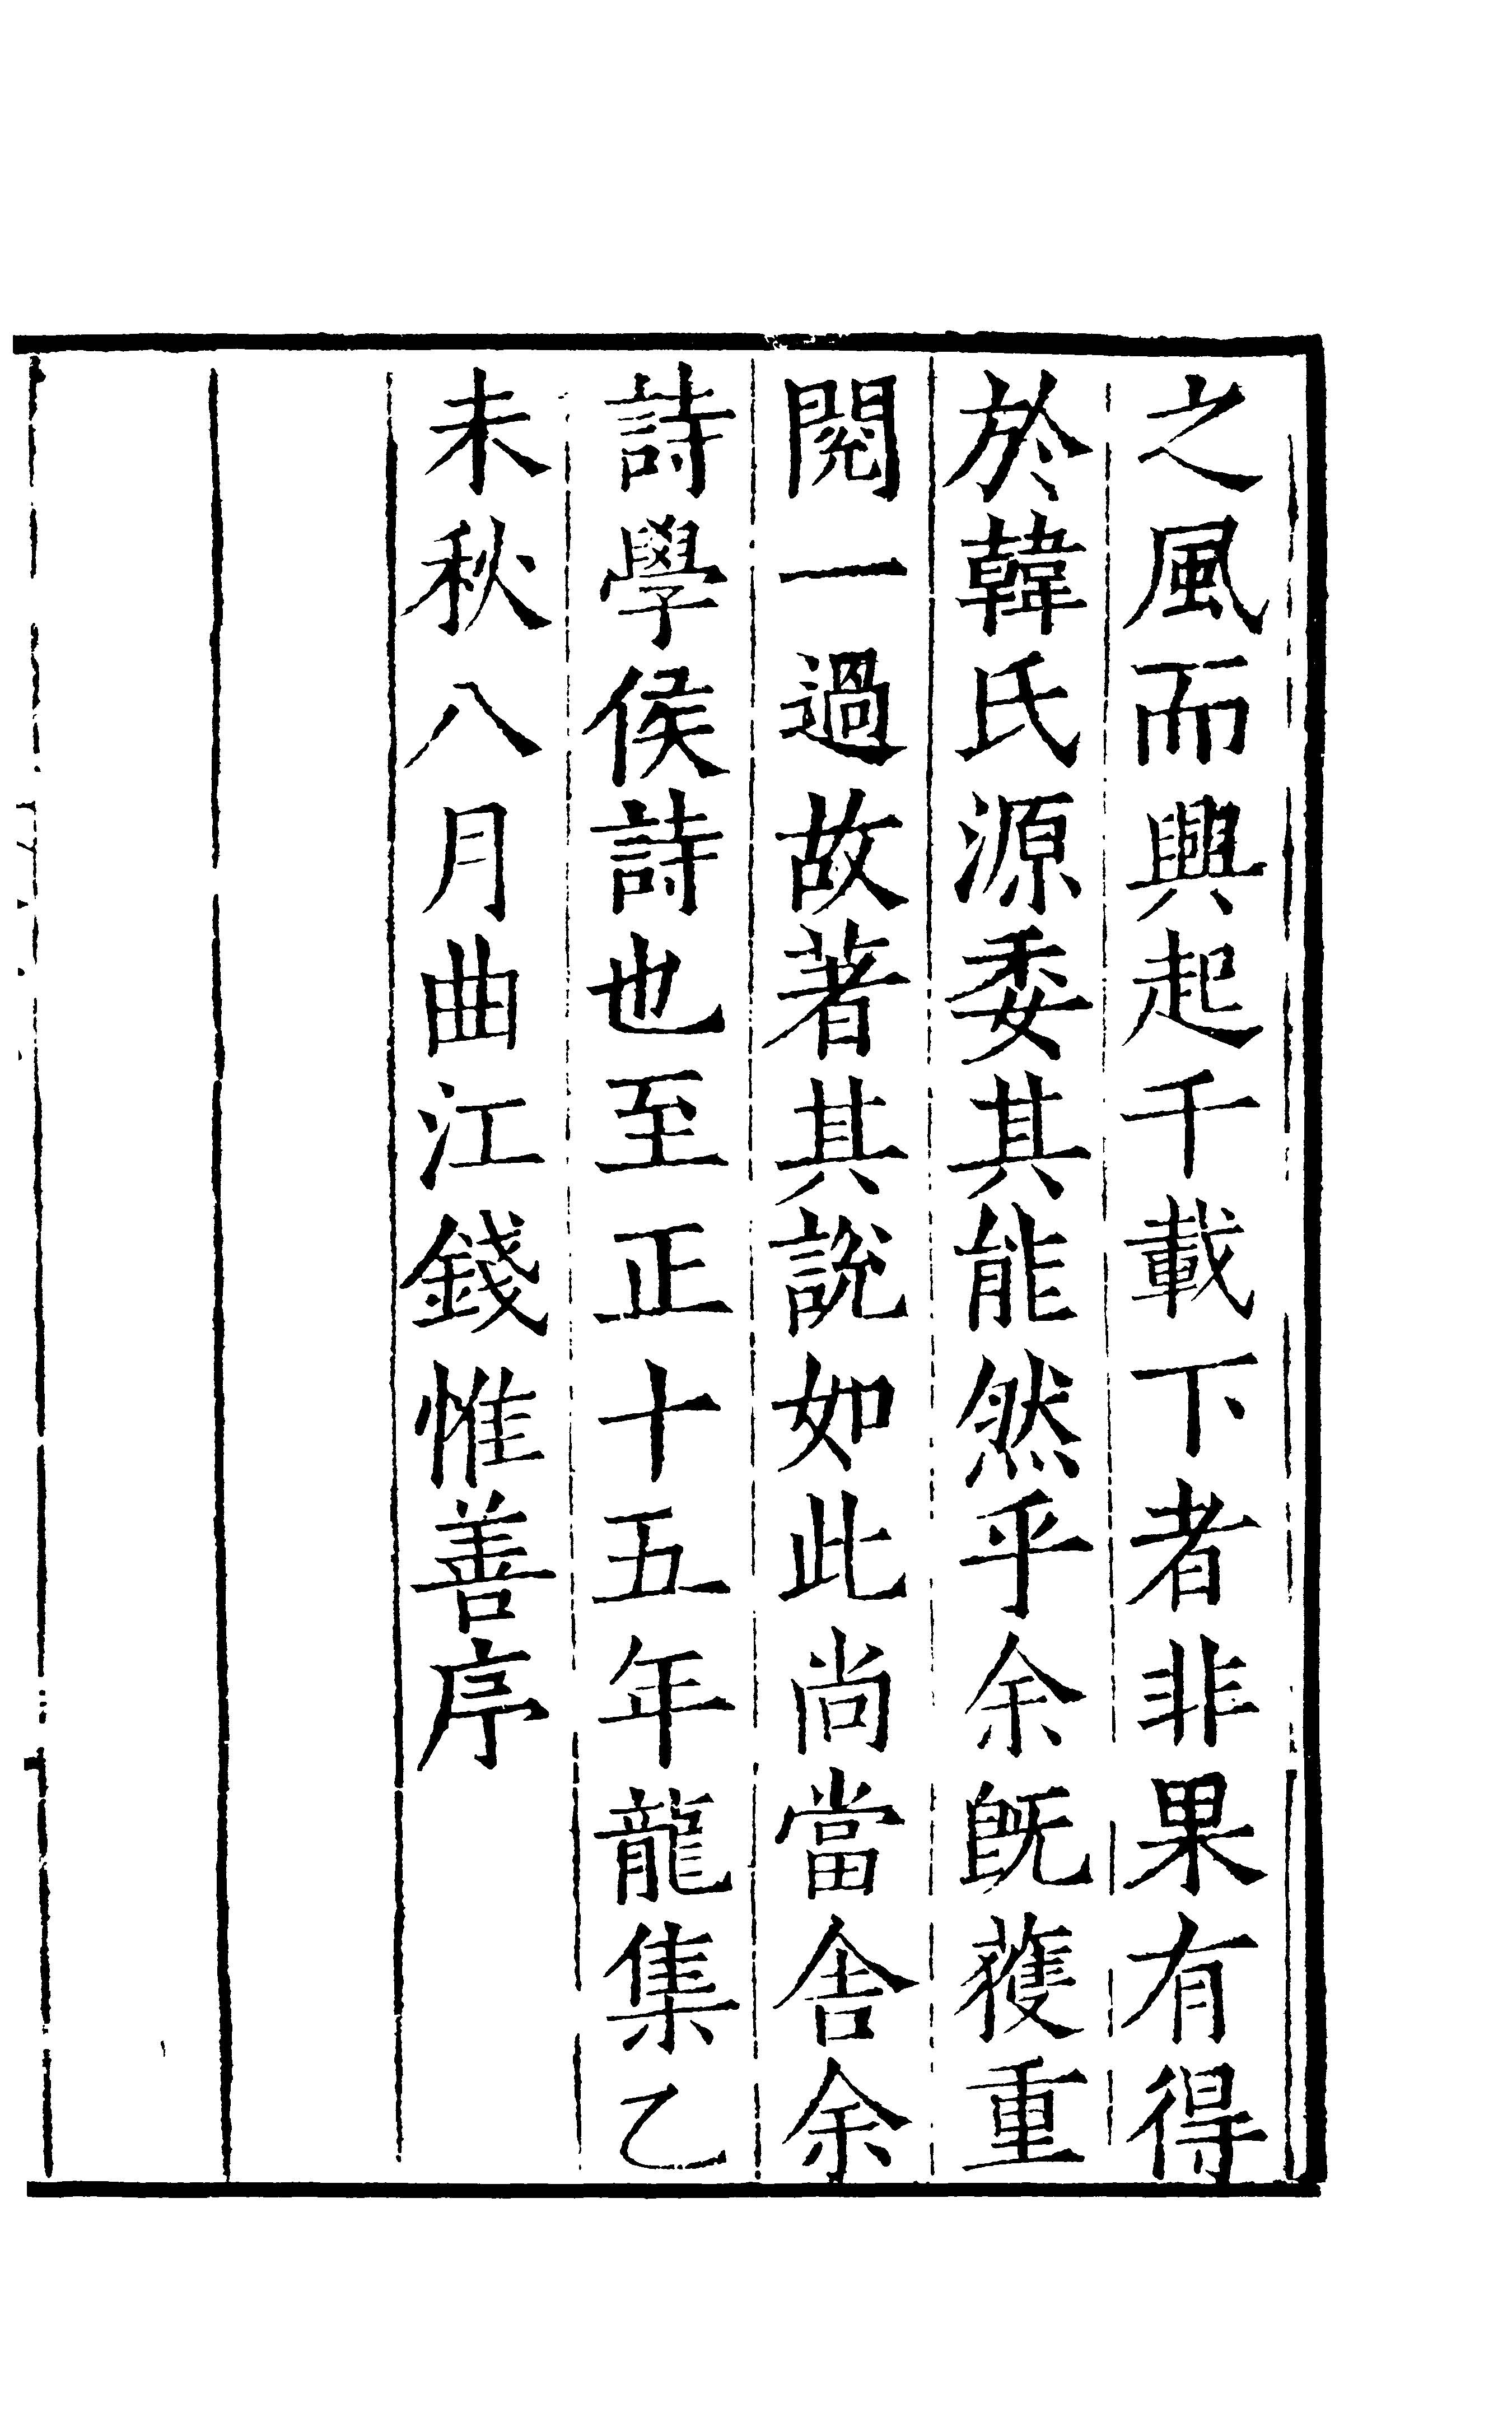 之風而興起千載下者非果有得
於韓氏源委其能然乎余旣獲重
閱一過故著其說如此尚當舍余
詩學侯詩也至正十五年龍集乙
未秋八月曲江錢惟善序